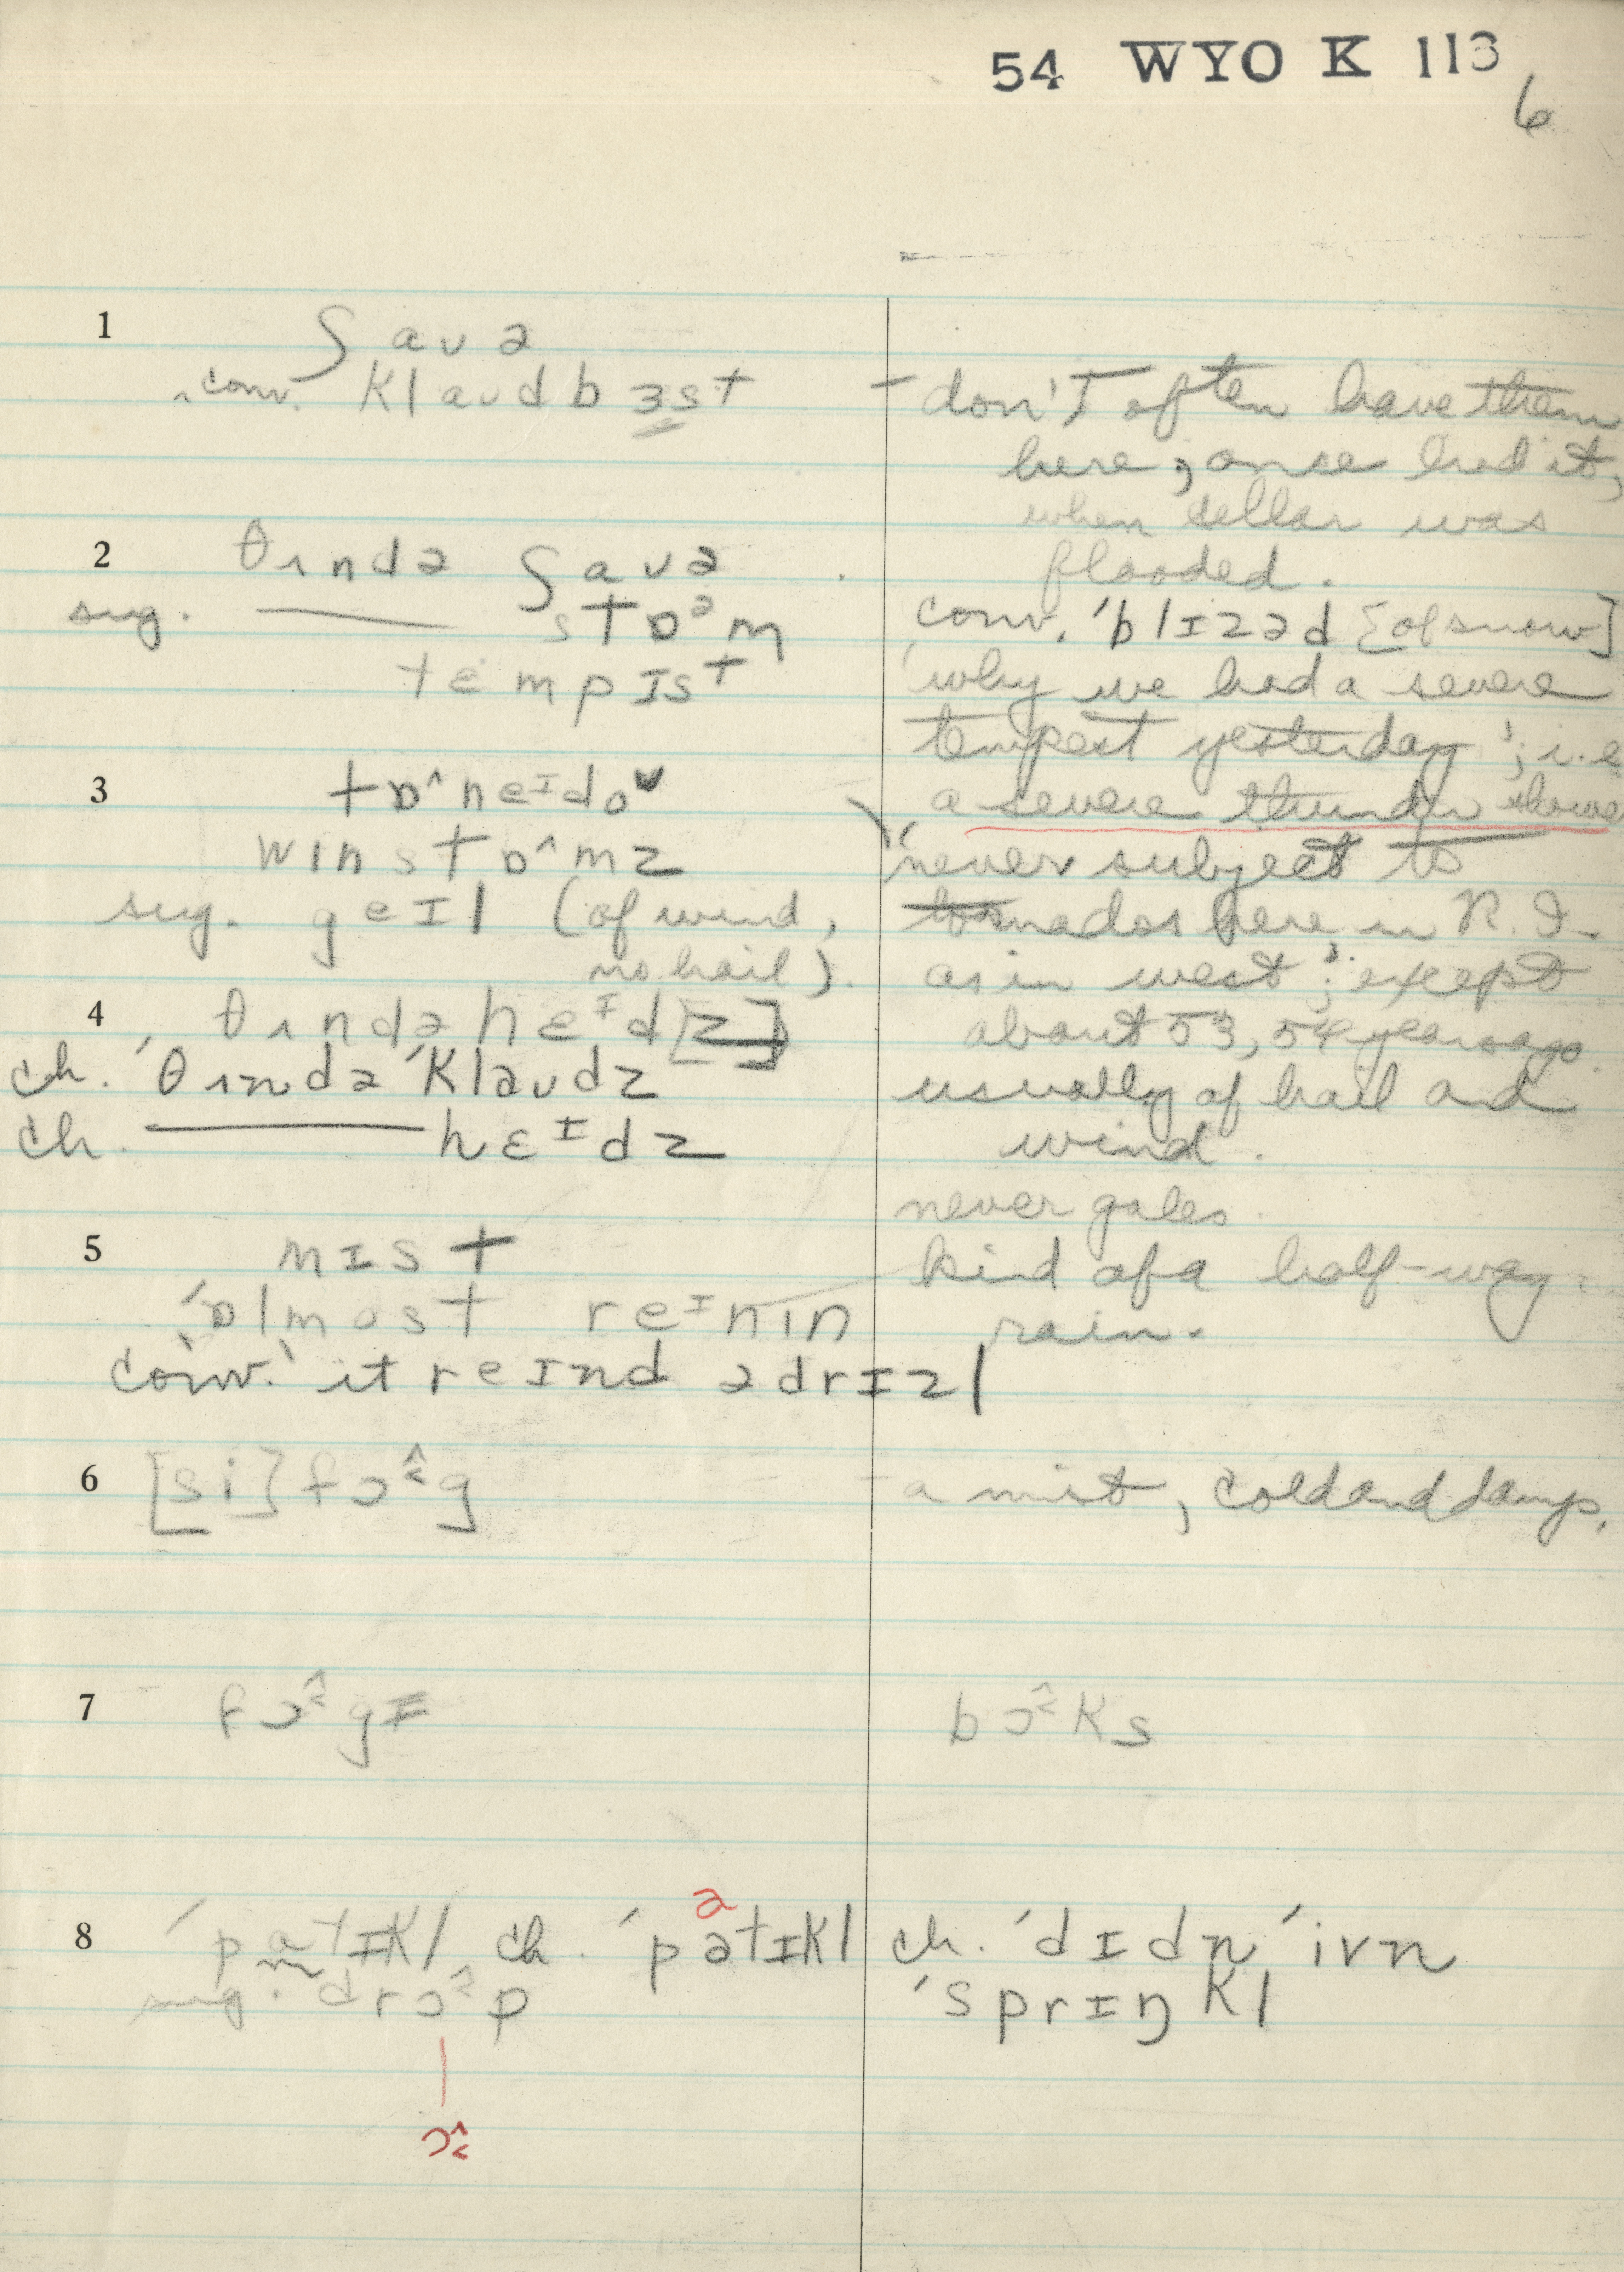 54 WYO K 113
6
1 ʃaʊə
conv. klaʊdbɜst
2 θʌndə ʃaʊə
sug. ——— stɒᵊm
tempɪst
3 tɒ^neɪdoᵛ
winstɒ^mz
sug. geɪl (of wind,
no hail).
4 ˈθʌndə hɛᶦd[z]
ch. ˈθʌndə ˈklaʊdz
ch. ——— hɛᶦdz
5 mɪst
ˈɒlmost reᶦnin
conv. ˈit reɪnd ə drɪzl
6 [si] fɔg
7 fɔgɪ
8 ˈpatɪkl ch. ˈpətɪkl
ə
sug. drɔp
ɔ
– don't often have them
here; once had it,
when cellar was
flooded.
conv. ˈblɪzəd [of snow]
'why we had a severe
tempest yesterday'; i.e.
a severe thunder showe
'never subject to
tornados here in R.I.
as in west'; except
about 53, 54 years ago.
usually of hail and
wind.
never gales.
kind of a half-way
rain.
a mist, cold and damp.
bɔks
ch. ˈdɪdn ˈivn
ˈsprɪŋkl